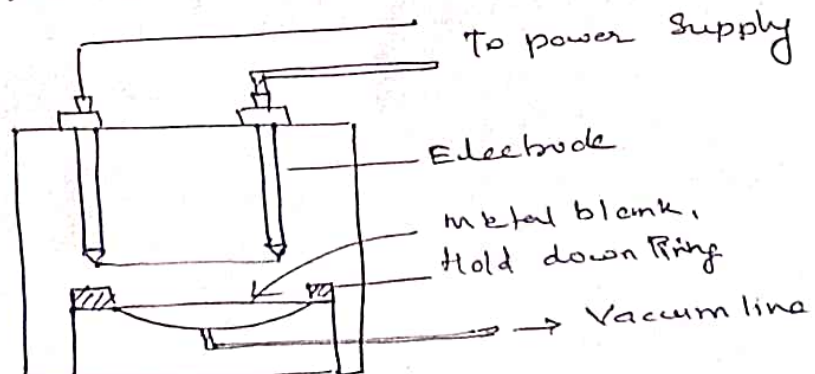 To power Supply
Electrode
metal blank,
Hold down Ring
→ Vaccum line